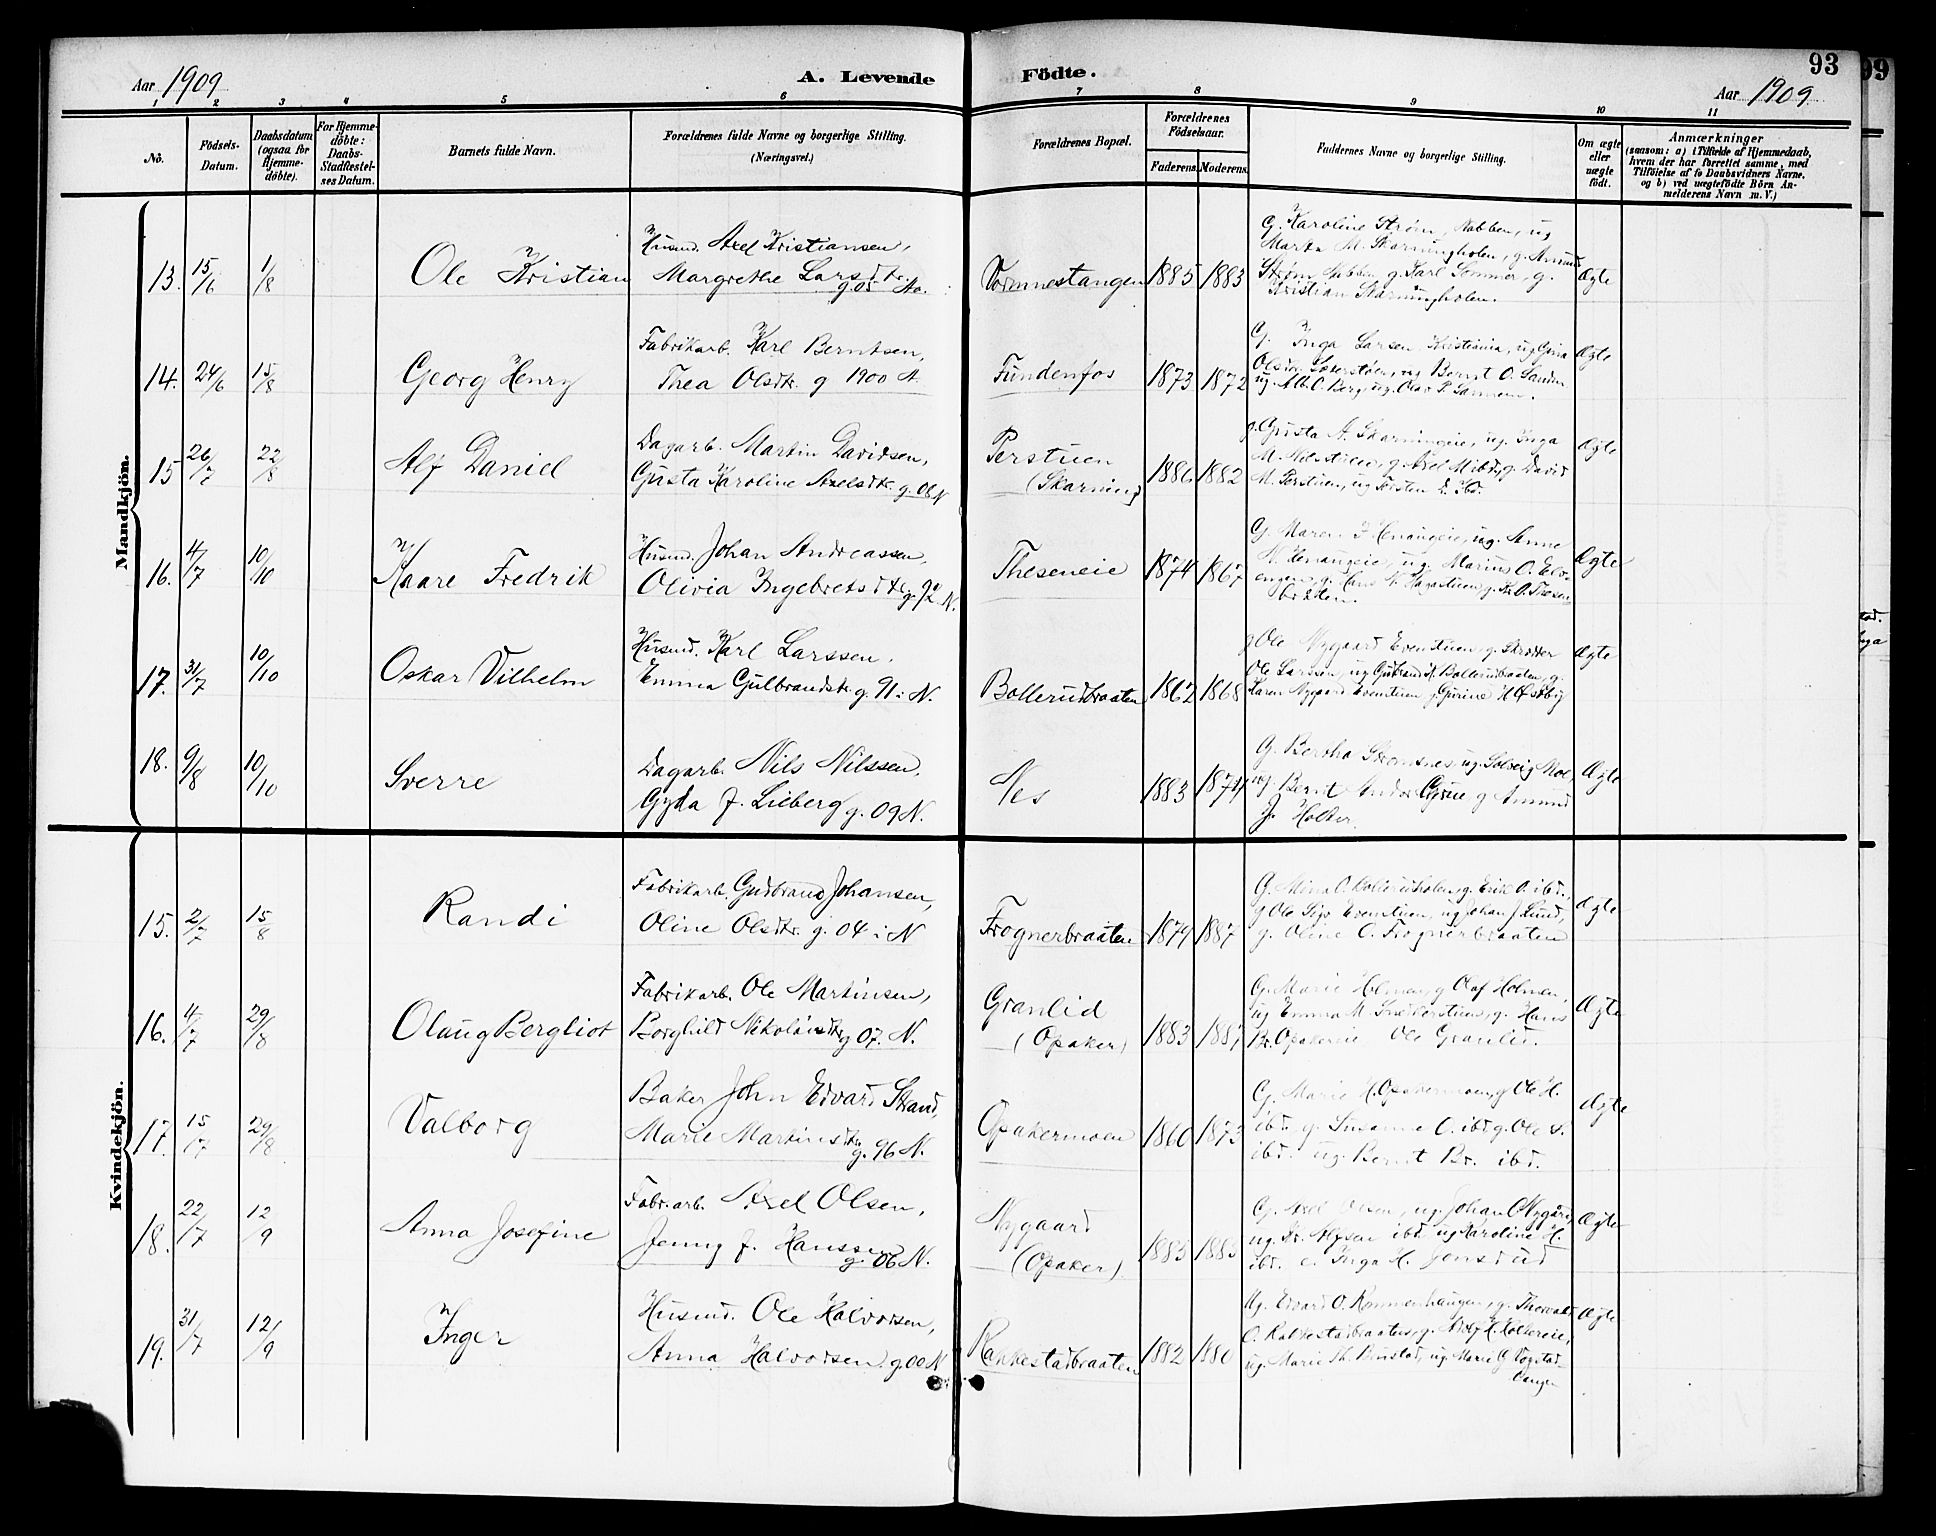 Aar 1909
A. Levende
Födte.
93
Aar 1909
1 2 3 4 5 6 7 8 9 10 11
No.
Födsels-
Datum.
Daabsdatum
(ogsaa for
Hjemme-
döbte).
For Hjemme-
döbte:
Daabs-
Stadfæstel-
ses Datum.
Barnets fulde Navn.
Forældrenes fulde Navne og borgerlige Stilling.
(Næringsvei.)
Forældrenes Bopæl.
Forældrenes
Födselsaar.
Faderens. Moderens.
Faddernes Navne og borgerlige Stilling.
Om ægte
eller
uægte
födt.
Anmærkninger
(saasom: a) i Tilfælde af Hjemmedaab,
hvem der har forrettet samme, med
Tilföielse af to Daabsvidners Navne.
og b) ved uægtefödte Börn An-
melderens Navn m. V.)
Mandkjön.
13. 15/6 1/8 Ole Kristian
Husmd. Axel Kristiansen,
Margrethe Larsdtr.
Vormnestangen 1885 1883
G. Karoline Strøm, Nabben, ug
Marta M. Skarningholen, g. Amund
Strøm Nabben, g. Karl Sommer, g.
Kristian Skarningholen.
Ægte
14. 24/6 15/8 Georg Henry
Fabrikarb. Karl Berntsen,
Thea Olsdtr. g 1900 A
Fundenfos 1873 1872
G. Inga Larsen, Kristiania, ug Gina
Olsdtr. ug Bernt O.
ug. Alb. O. Berg, ug. Olav P.
Ægte
15 26/7 22/8 Alf Daniel
Dagarb. Martin Davidsen,
Gusta Karoline Axelsdtr. g. 08 N
Perstuen
(Skarning) 1886 1882
g. Gusta A. Skarningeie, ug. Inga
M. g. Axel M ibd, g. David
M. Perstuen, ug Torsten E. ibd.
Ægte
16. 4/7 10/10 Kaare Fredrik
Husmd. Johan Andreassen,
Olivia Ingebretsdtr. g. 92 N.
Theseneie 1874 1867
G. Maren J. Henaugeie, ug. Anne
N. Henaugeie, ug. Marius O. Elv-
engen, g. Hans N. g. Kr. O. Thesen-
bråten.
Ægte
17. 31/7 10/10 Oskar Vilhelm
Husmd. Karl Larssen.
Emma Gulbrandsdtr. g. 91 i N.
Bollerudbraaten 1862 1868
g. Ole Nygaard Evenstuen, g. Skrædder
Ole Larssen, ug Gulbrand K. Bollerudbraaten, g.
Karen Nygaard Evenstuen g. Gurine H.
Ægte
18. 9/8 10/10 Sverre
Dagarb. Nils Nilssen.
Gyda f. Lieberg g. 09 N.
Nes 1883 1874
G. Bertha Strømsnes, ug. Solveig Moe,
ug Bernt g Amund
J. Holter.
Ægte
Kvindekjön.
15. 2/7 15/8 Randi
Fabrikarb. Gudbrand Johansen,
Oline Olsdtr. g. 04 i N
Frognerbraaten 1879 1887
G. Mina O. g. Erik O. ibd.,
g Ole Sigv. Evenstuen, ug Johan J. Lund,
g. Oline O. Frognerbraaten
Ægte
16. 4/7 29/8 Olaug Bergliot
Fabrikarb. Ole Martinsen,
Borghild Nikolaisdtr g 07. N.
Granlid
(Opaker) 1883 1887
G. Marie Holmen, g Olaf Holmen,
ug Emma M. g. Hans
Br. Opakereie Ole Granlid.
Ægte
17. 15/7 29/8 Valborg
Baker John Edvard Strand,
Marie Martinsdtr g. 96 N.
Opakermoen 1860 1873
G. Marie H. Opakermoen, g Ole H.
ibd. g. Susanne O. ibd g. Ole S.
ibd. ug. Bernt Br. ibd.
Ægte
18. 22/7 12/9 Anna Josefine
Fabr.arb. Axel Olsen,
Jenny f. Hanssen g. 06 N.
Nygaard
(Opaker) 1885 1885
G. Axel Olsen, ug. Johan O Nygård,
ug. Kr. ibd. ug Karoline H.
ibd. e. Inga H. Jensrud
Ægte
19. 31/7 12/9 Inger
Husmd. Ole Halvorsen,
Anna Halvorsen g. 00 N
Rakkestadbraaten 1882 1880
Ug. Edvard O. Rommenhaugen, g. Thorvald
O. Rakkestadbraaten, g.
ug. Marie Th. Brustad, ug. Marie G Vogstad-
Ægte